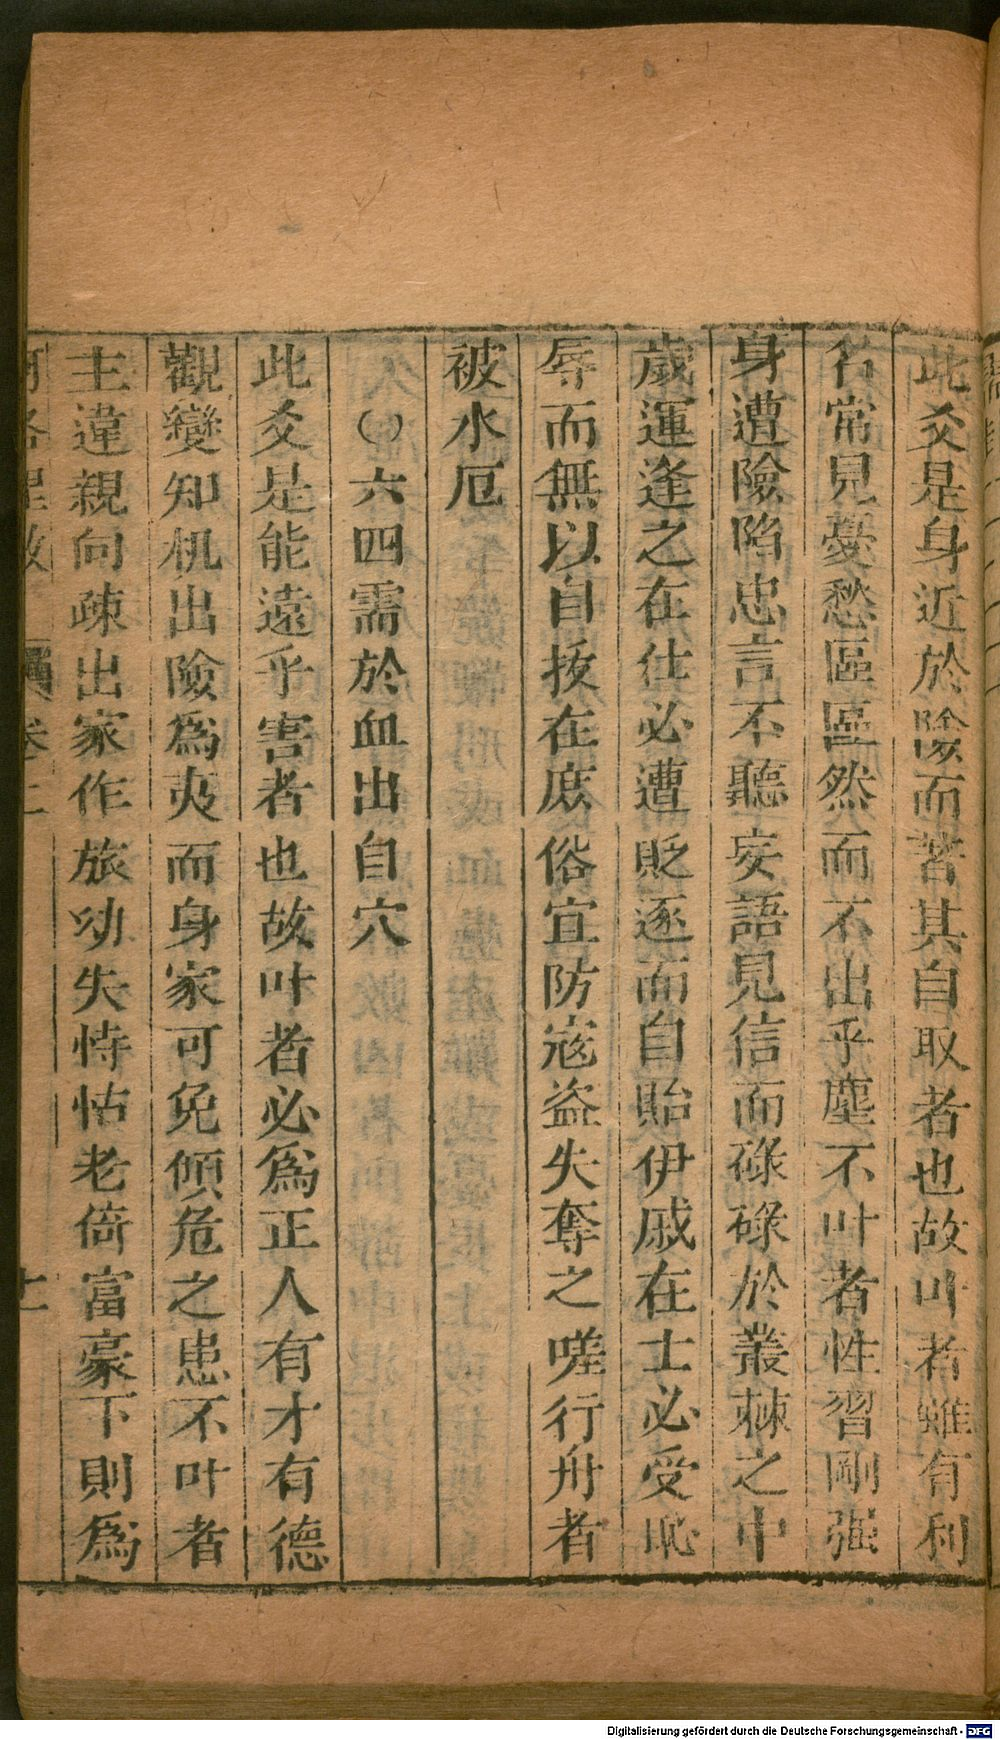 此爻是身近於險而咎其自取者也故叶者雖有利
名常見憂愁區區然而不出乎塵不叶者性習剛强
身遭險陷忠言不聽妄語見信而碌碌於叢棘之中
歲運逢之在仕必遭貶逐而自貽伊戚在士必受恥
辱而無以自拔在庶俗宜防寇盗失奪之嗟行舟者
被水厄
()六四需於血出自穴
此爻是能遠乎害者也故叶者必爲正人有才有德
觀變知机出險爲夷而身家可免傾危之患不叶者
主違親向疎出家作旅幼失恃怙老倚富豪下則爲
卷二
Digitalisierung gefördert durch die Deutsche Forschungsgemeinschaft - DFG